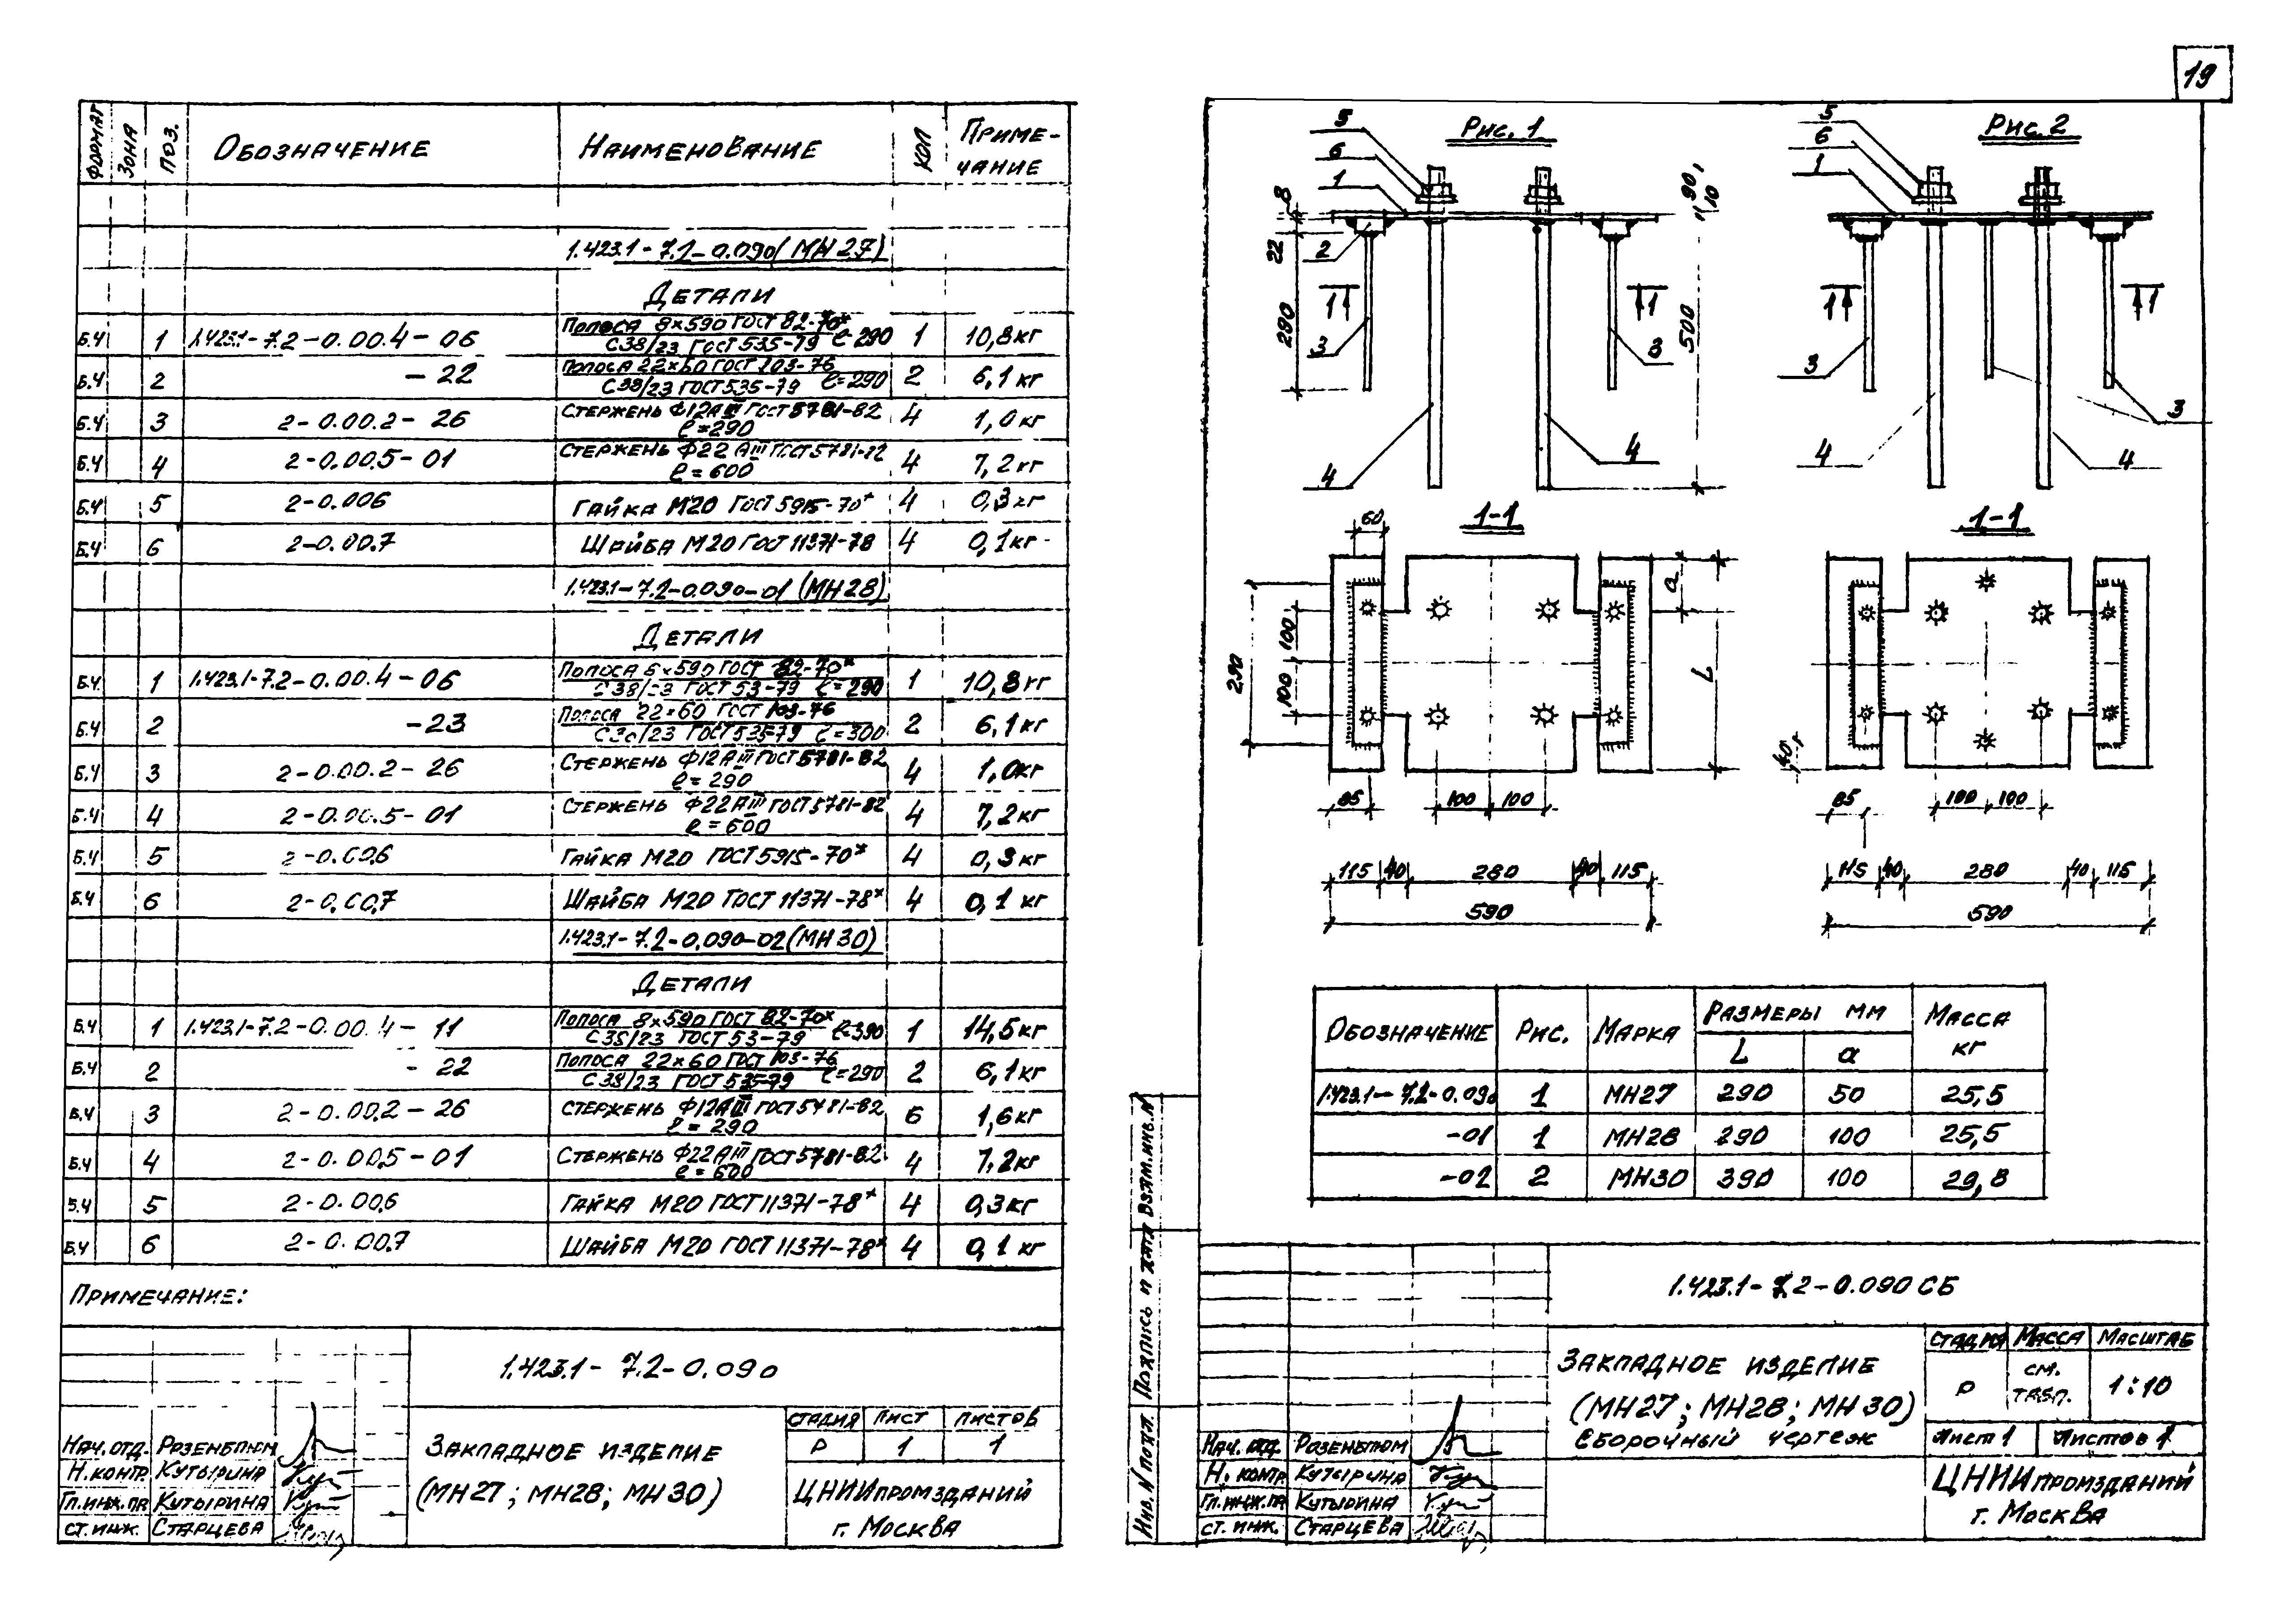 19
ФОРМАТ ЗОНА ПОЗ. ОБОЗНАЧЕНИЕ НАИМЕНОВАНИЕ КОЛ ПРИМЕ-
ЧАНИЕ
1.423.1-7.2-0.090(МН27)
ДЕТАЛИ
Б.Ч 1 1.423.1-7.2-0.00.4-06 ПОЛОСА 8×590 ГОСТ 82-70* ℓ-290 1 10,8кг
С38/23 ГОСТ 535-79
Б.Ч 2 -22 ПОЛОСА 22×60 ГОСТ 103-76 2 6,1кг
С38/23 ГОСТ 535-79 ℓ=290
Б.Ч 3 2-0.00.2-26 СТЕРЖЕНЬ Ф12АIII ГОСТ 5781-82 4 1,0кг
ℓ=290
Б.Ч 4 2-0.00.5-01 СТЕРЖЕНЬ Ф22АIII ГОСТ 5781-82 4 7,2кг
ℓ=600
Б.Ч 5 2-0.006 ГАЙКА М20 ГОСТ 5915-70* 4 0,3кг
Б.Ч 6 2-0.00.7 ШАЙБА М20 ГОСТ 11371-78 4 0,1кг
1.423.1-7.2-0.090-01 (МН28)
ДЕТАЛИ
Б.Ч 1 1.423.1-7.2-0.00.4-06 ПОЛОСА 8×590 ГОСТ 82-70* 1 10,8кг
С38/23 ГОСТ 53-79 ℓ=290
Б.Ч 2 -23 ПОЛОСА 22×60 ГОСТ 103-76 2 6,1кг
С38/23 ГОСТ 535-79 ℓ=300
Б.Ч 3 2-0.00.2-26 СТЕРЖЕНЬ Ф12АIII ГОСТ 5781-82 4 1,0кг
ℓ=290
Б.Ч 4 2-0.00.5-01 СТЕРЖЕНЬ Ф22АIII ГОСТ 5781-82 4 7,2кг
ℓ=600
Б.Ч 5 2-0.00.6 ГАЙКА М20 ГОСТ 5915-70* 4 0,3кг
Б.Ч 6 2-0.00.7 ШАЙБА М20 ГОСТ 11371-78* 4 0,1 кг
1.423.1-7.2-0.090-02(МН30)
ДЕТАЛИ
Б.Ч 1 1.423.1-7.2-0.00.4-11 ПОЛОСА 8×590 ГОСТ 82-70* ℓ=390 1 14,5кг
С38/23 ГОСТ 53-79
Б.Ч 2 -22 ПОЛОСА 22×60 ГОСТ 103-76 2 6,1кг
С38/23 ГОСТ 535-79 ℓ=290
Б.Ч 3 2-0.00.2-26 СТЕРЖЕНЬ Ф12АIII ГОСТ 5781-82 6 1,6кг
ℓ=290
Б.Ч 4 2-0.00.5-01 СТЕРЖЕНЬ Ф22АIII ГОСТ 5781-82 4 7,2кг
ℓ=600
Б.Ч 5 2-0.00.6 ГАЙКА М20 ГОСТ 11371-78* 4 0,3кг
Б.Ч 6 2-0.00.7 ШАЙБА М20 ГОСТ 11371-78* 4 0,1 кг
ПРИМЕЧАНИЕ:
1.423.1-7.2-0.090
НАЧ.ОТД. РОЗЕНБЛЮМ
Н.КОНТР. КУТЫРИНА
ГЛ.ИНЖ.ПР КУТЫРИНА
СТ.ИНЖ. СТАРЦЕВА
ЗАКЛАДНОЕ ИЗДЕЛИЕ
(МН27; МН28; МН30)
СТАДИЯ ЛИСТ ЛИСТОВ
Р 1 1
ЦНИИПРОМЗДАНИЙ
г. МОСКВА
РИС. 1
5
6
1
8
22
2
290
1 1
3 3
4 4
90,
10
500
РИС. 2
5
6
1
1 1
3
3
4 4
1-1
60
290
100 100
а
L
85 100 100
115 40 280 40 115
590
1-1
40
85 100 100
115 40 280 40 115
590
ОБОЗНАЧЕНИЕ РИС. МАРКА РАЗМЕРЫ ММ МАССА
КГ
L а
1.423.1-7.2-0.090 1 МН27 290 50 25,5
-01 1 МН28 290 100 25,5
-02 2 МН30 390 100 29,8
ИНВ. N ПОДЛ. ПОДПИСЬ И ДАТА ВЗАМ.ИНВ.N
1.423.1-7.2-0.090 СБ
НАЧ. ОТД. РОЗЕНБЛЮМ
Н. КОНТР. КУТЫРИНА
ГЛ.ИНЖ.ПР. КУТЫРИНА
СТ. ИНЖ. СТАРЦЕВА
ЗАКЛАДНОЕ ИЗДЕЛИЕ
(МН27; МН28; МН30)
СБОРОЧНЫЙ ЧЕРТЕЖ
СТАДИЯ МАССА МАСШТАБ
Р СМ.
ТАБЛ. 1:10
ЛИСТ 1 ЛИСТОВ 1
ЦНИИПРОМЗДАНИЙ
г. МОСКВА